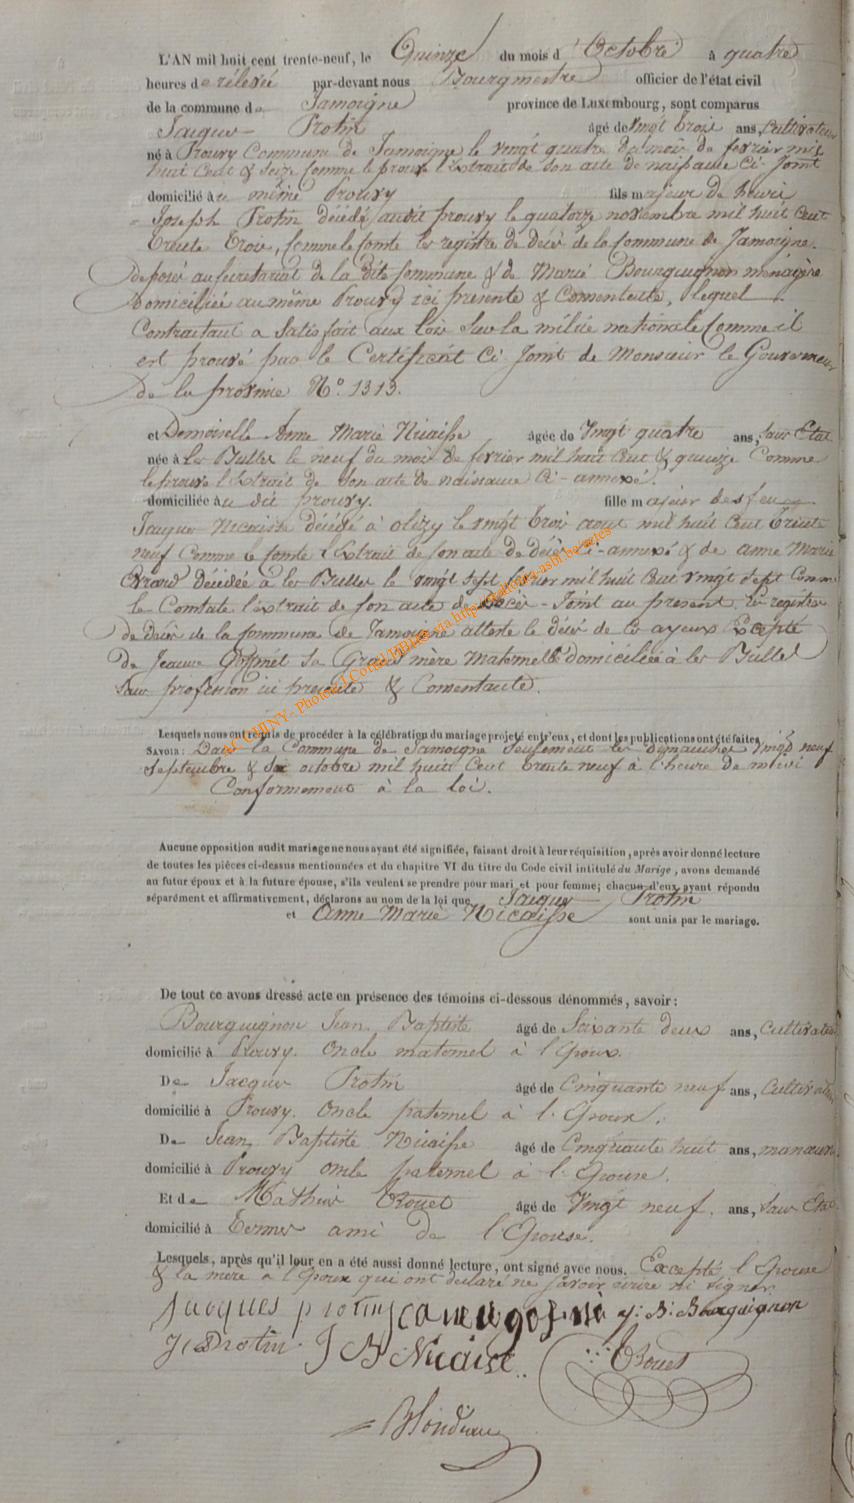 L'AN mil huit cent trente-neuf, le Quinze du mois d'Octobre à quatre
heures de rélevée par-devant nous Bourgmestre officier de l'état civil
de la commune de Jamoigne province de Luxembourg, sont comparus
Jacques Protin âgé de vingt trois ans, cultivateur
né à Prouvy Commune de Jamoigne le vingt quatre du mois de fevrier mil
huit cent & seize comme le prouve l'extrait de son acte de naissance ci-Joint
domicilié au même Prouvy fils majeur de henri
Joseph Protin décédé audit prouvy le quatorze novembre mil huit cent
trente trois, comme le conste les registre de décès de la Commune de Jamoigne
déposé au secretariat de la dite Commune & de Marie Bourguignon ménagère
Domiciliée au même Prouvy ici presente & Consentente, lequel
Contractant a Satisfait aux loix sur la milice nationale comme il
est prouvé par le Certificat Ci-Joint de Monsieur le Gouverneur
de la province N° 1313.
et Demoiselle Anne Marie Nicaisse âgée de Vingt quatre ans, sans Etat
née à les Bulles le neuf du mois de fevrier mil huit cent & quinze Comme
le prouve l'extrait de son acte de naissance ci-annexé.
domiciliée au dit prouvy. fille majeur des feu
Jacques Nicaisse décédé à olizy le vingt trois aout mil huit cent trente
neuf comme le conste l'Extrait de son acte de décès ci-annexé & de anne Marie
décédée à les Bulles le vingt sept fevrier mil huit cent vingt sept Comme
le Constate l'extrait de son acte de décès-Joint au present. les registre
de décès de la Commune de Jamoigne atteste le décès de les ayeux Excepté
de Jeanne Gosinet sa Grand mère Maternelle domiciliée à les Bulles
Sans profession ici presente & Consentante.
Lesquels nous ont requis de procéder à la célébration du mariage projeté entr'eux, et dont les publications ont été faites
SAVOIR: Dans la Commune de Jamoigne Seulement les dimanches vingt neuf
septembre & six octobre mil huit Cent trente neuf à l'heure de midi
Conformement à la loi.
Aucune opposition audit mariage ne nous ayant été signifiée, faisant droit à leur réquisition, après avoir donné lecture
de toutes les pièces ci-dessus mentionnées et du chapitre VI du titre du Code civil intitulé du Marige, avons demandé
au futur époux et à la future épouse, s'ils veulent se prendre pour mari et pour femme; chacun d'eux ayant répondu
séparément et affirmativement, déclarons au nom de la loi que Jacques Protin
et Anne Marie Nicaisse sont unis par le mariage.
De tout ce avons dressé acte en présence des témoins ci-dessous dénommés, savoir:
Bourguignon Jean Baptiste âgé de Soixante deux ans, cultivateur
domicilié à Prouvy. oncle maternel à l'Epoux.
De Jacques Protin âgé de Cinquante neuf ans, cultivateur
domicilié à Prouvy. oncle paternel à l'Epoux.
De Jean Baptiste Nicaisse âgé de Cinquante huit ans, manoeuvre
domicilié à Prouvy oncle paternel à l'Epouse.
Et de Mathieu Thouet âgé de Vingt neuf. ans, sans Etat
domicilié à Termes ami de l'Epouse.
Lesquels, après qu'il leur en a été aussi donné lecture, ont signé avec nous. Excepté l'Epouse
& la mère à l'Epoux qui ont declaré ne savoir écrire ni signer.
Jacques protin jeanne gosinè J: B: Bourguignon
J Protin J B Nicaise Thouet
Blondeau